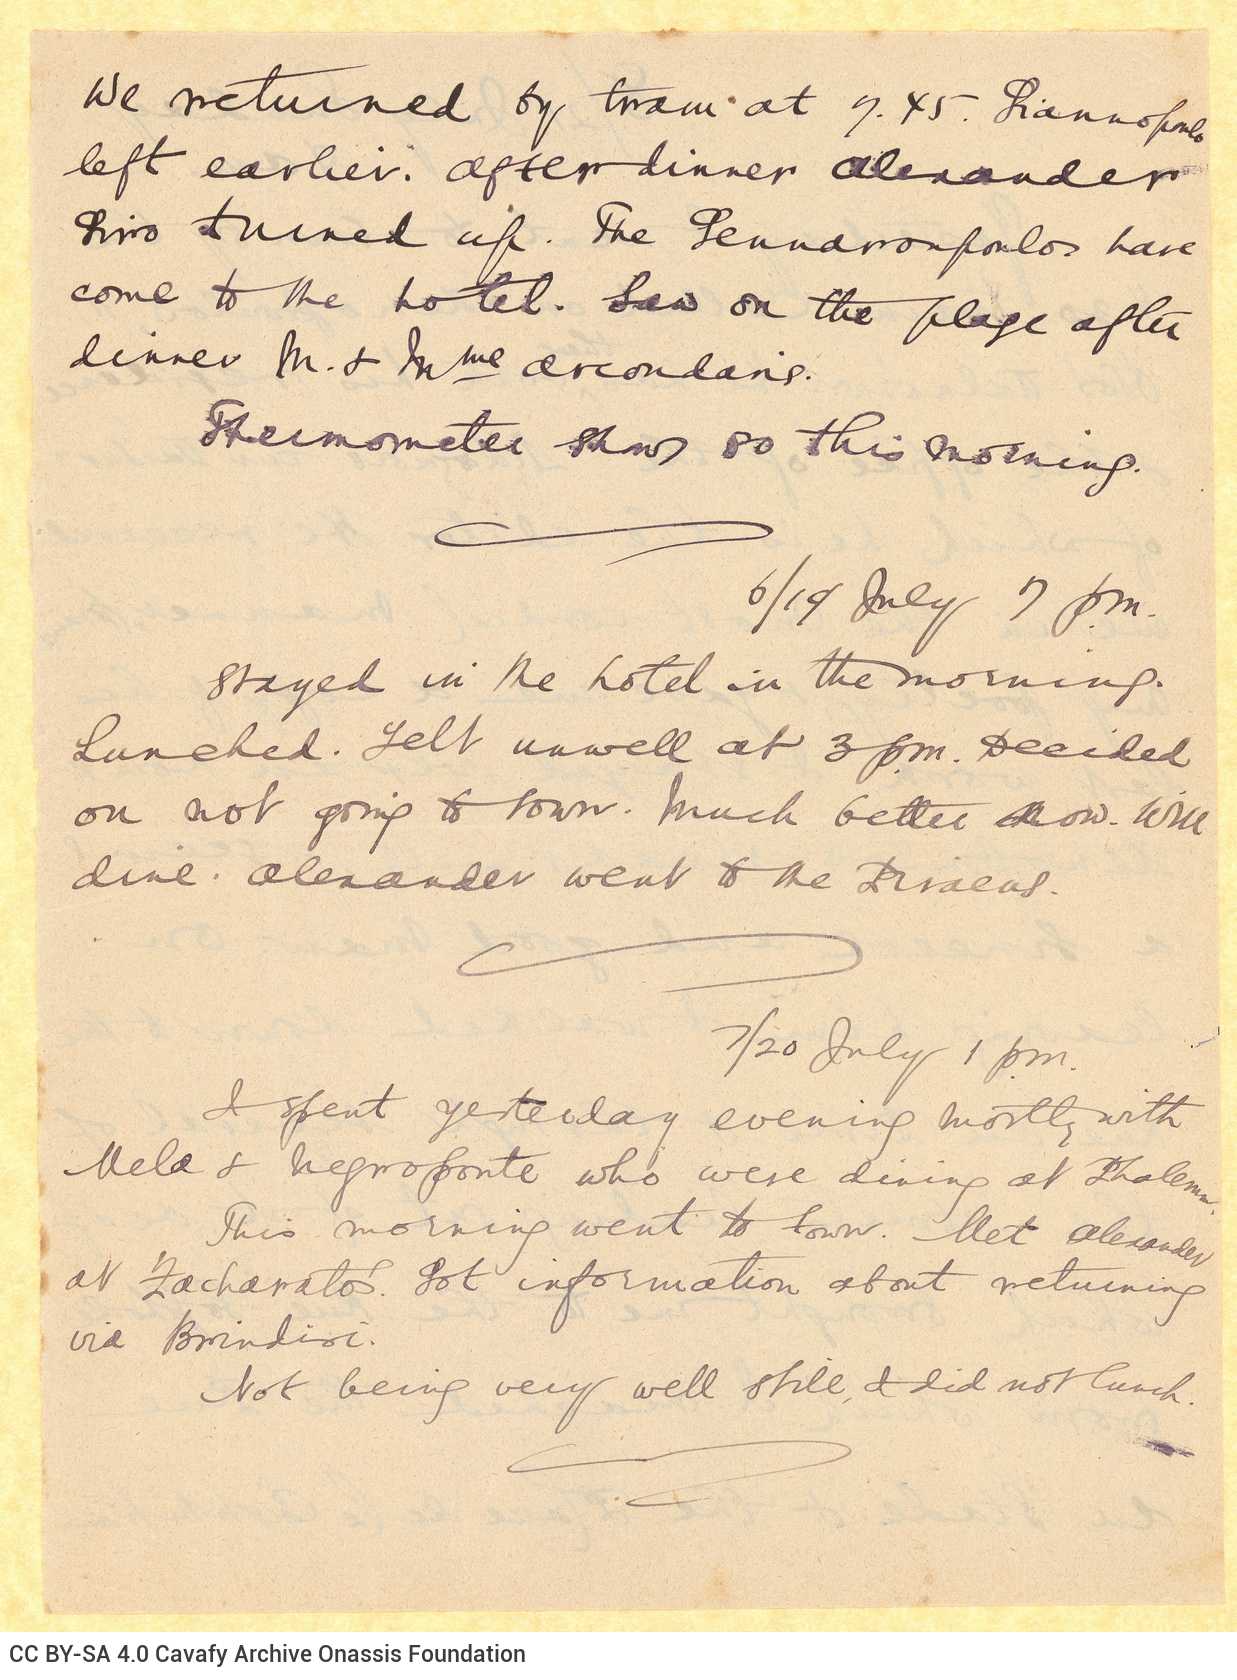 We returned by tram at 7.45. Giannopoulo
left earlier. After dinner Alexander
Giro turned up. The Gennaropoulos have
come to the hotel. Saw on the plage after
dinner M. & Mme Arcondaris.
Thermometer shows 80 this morning.
6/19 July 7 p.m.
Stayed in the hotel in the morning.
Lunched. Felt unwell at 3 p.m. Decided
on not going to town. Much better now. Will
dine. Alexander went to the Piraeus.
7/20 July 1 p.m.
I spent yesterday evening mostly with
Mela & Negroponte who were dining at Phalerum.
This morning went to town. Met Alexander
at Zacharato's. Got information about returning
via Brindisi.
Not being very well still, I did not lunch.
CC BY-SA 4.0 Cavafy Archive Onassis Foundation